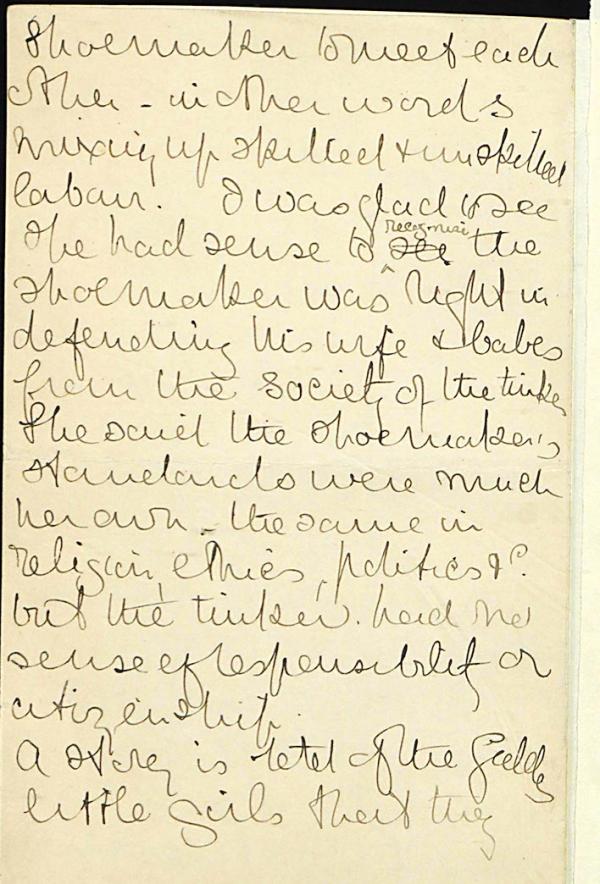 shoemaker to meet each
other - in other words
mixing up skilled & unskilled
labour. I was glad to see
she had sense to see recognise the
shoemaker was right in
defending his wife & babes
from the society of the tinker
She said the shoemaker's
standards were much
her own - the same in
religion, ethics, politics &c.
but the tinker had no
sense of responsibility or
citizenship.
A story is told of the
little girls that they